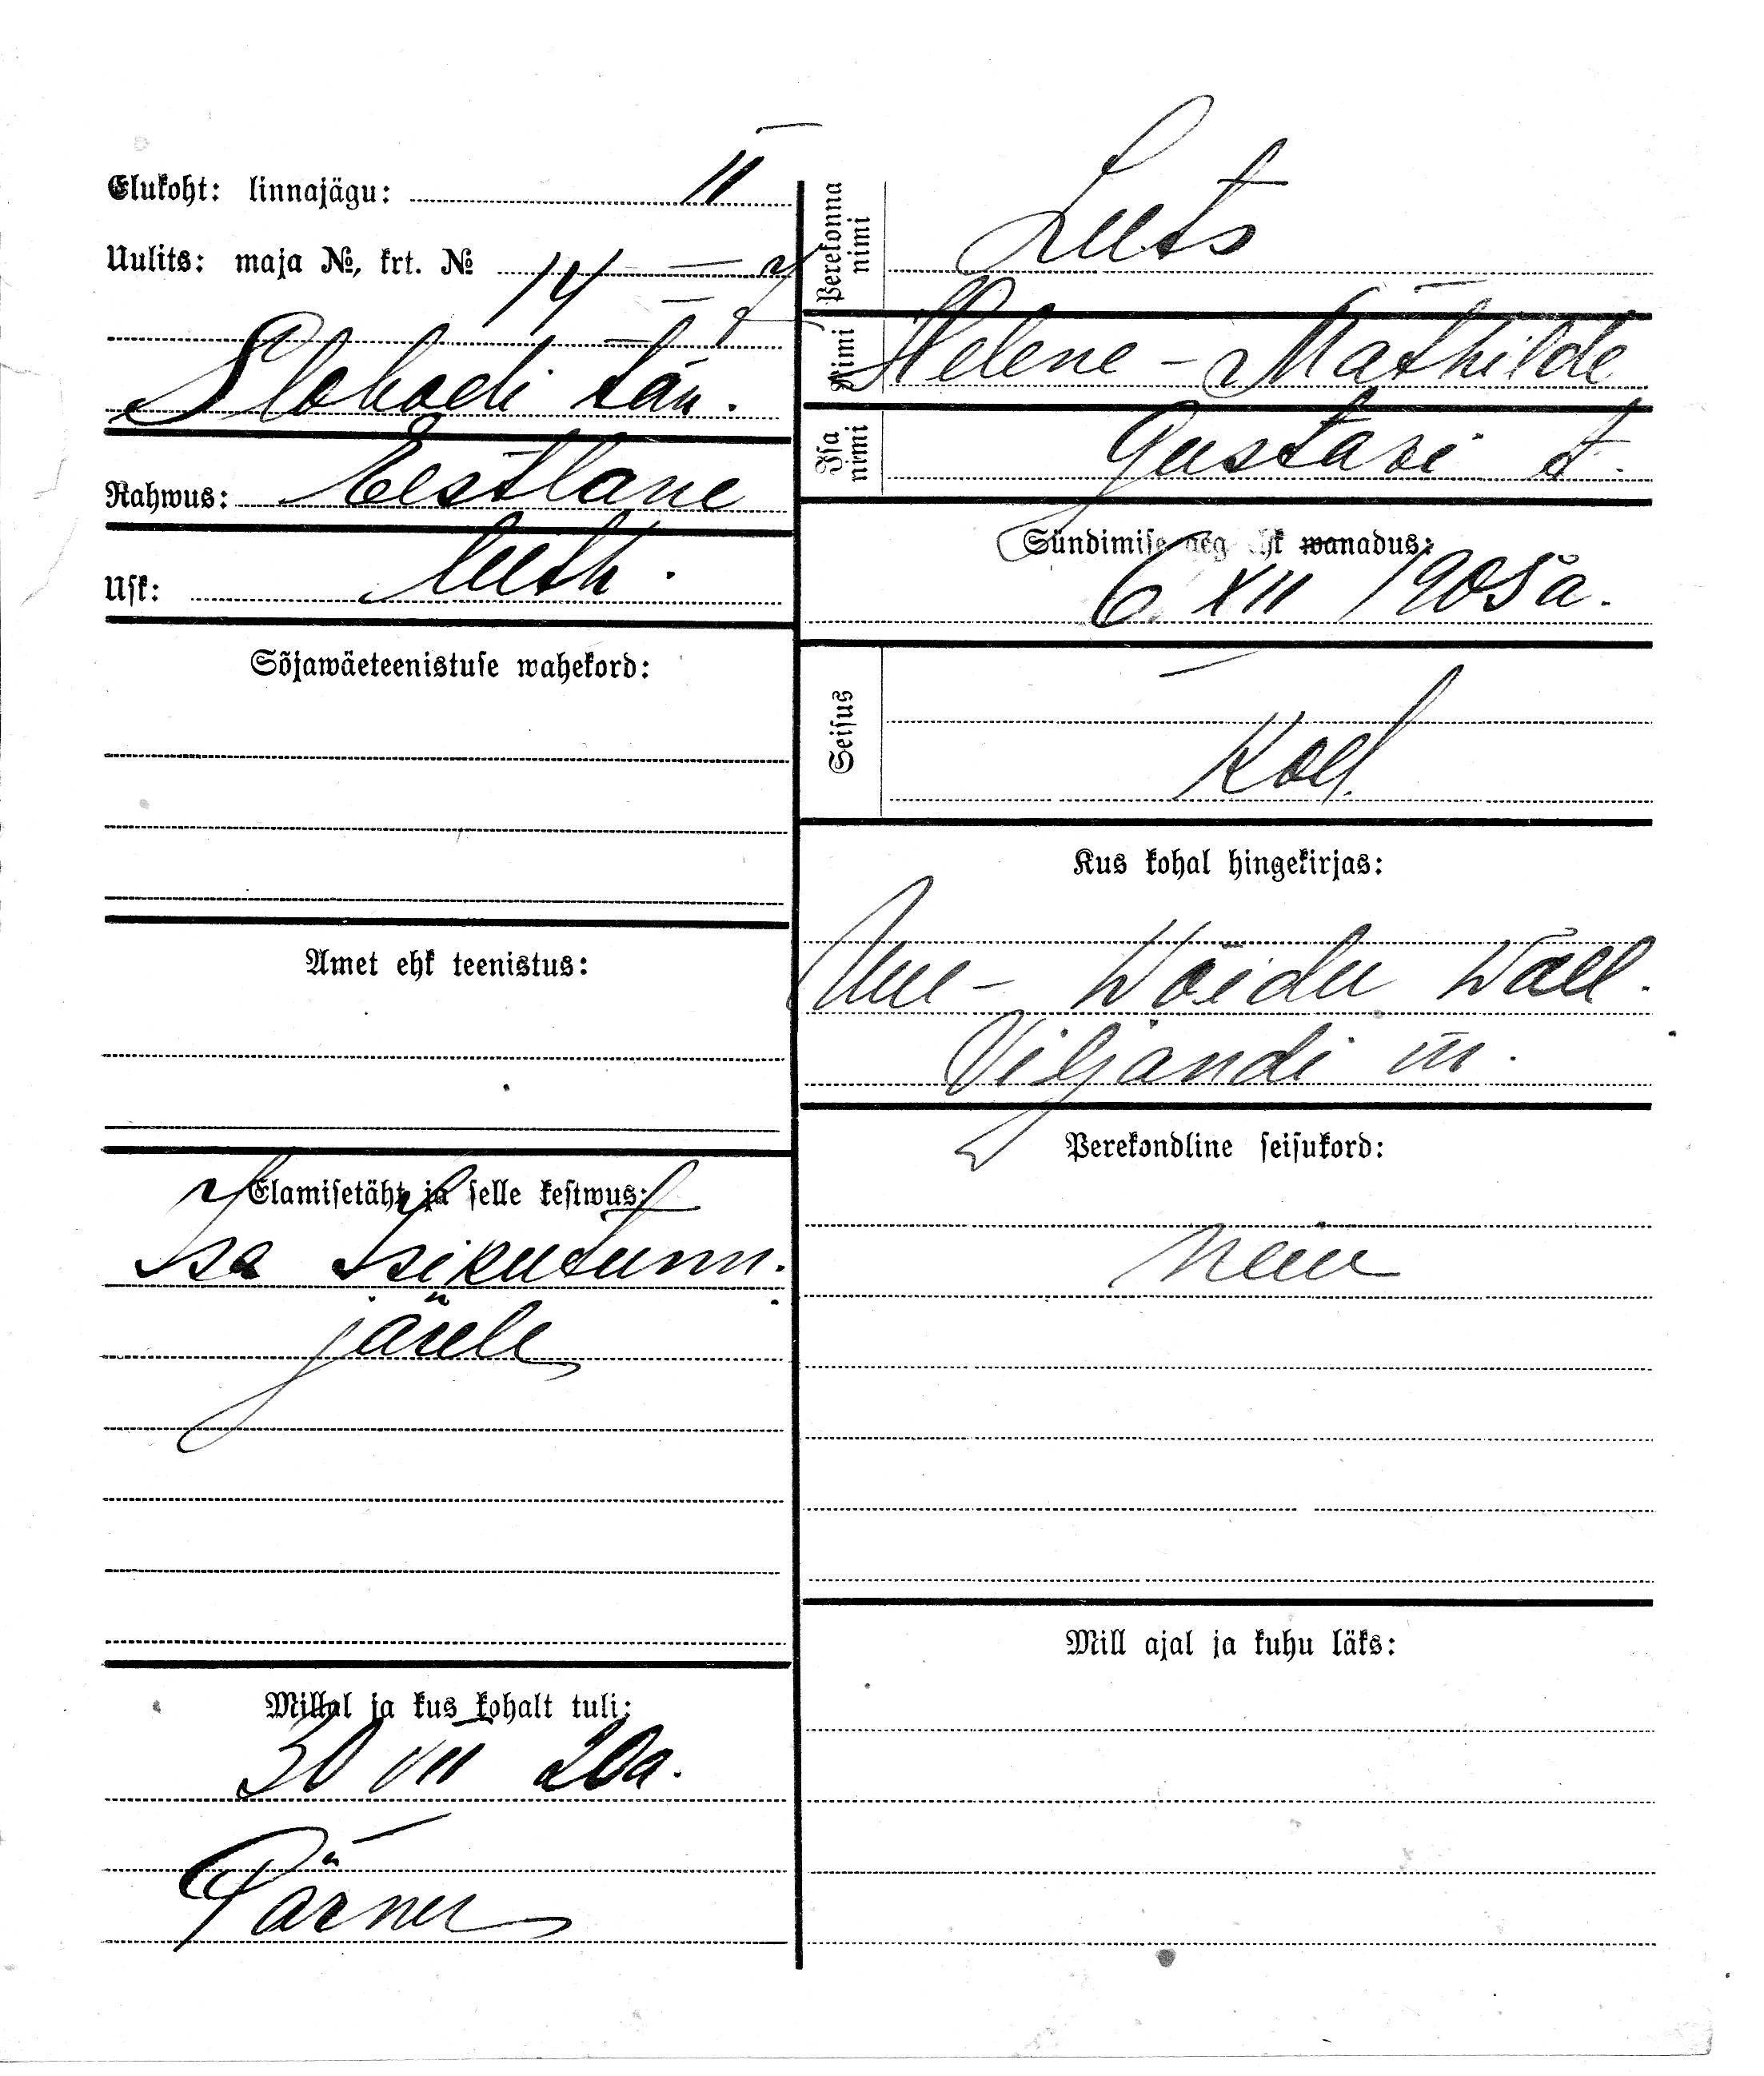 Elukoht: linnajägu: II
Uulits: maja №, krt. № 14 — 7
Slobodi tän.
Rahwus: Eestlane
Usk: luth.
Sõjawäeteenistuse wahekord:
Amet ehk teenistus:
Elamisetäht ja selle kestwus:
Isa Isikutunn.
järele
Millal ja kus kohalt tuli:
30 VII 20a.
Pärnu
Perekonna nimi
Luts
Nimi
Helene - Mathilde
Isa nimi
Gustavi t.
Sündimise aeg ehk wanadus:
6 XII 1905a.
Seisus
Kod.
Kus kohal hingekirjas:
Uue - Wõidu wall.
Viljandi m.
Perekondline seisukord:
neiu
Mill ajal ja kuhu läks: